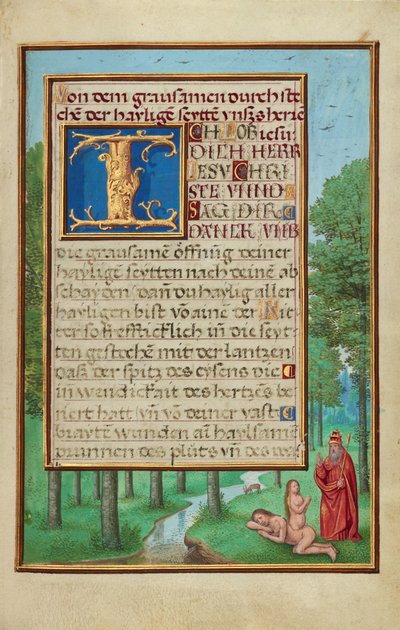 Von dem grausamen durchste
chē der hayligē seyttē vnsz herrē
ICH LOB iesu
DICH HERR
JESV CHRI
STE VNND
SAG DIR
DANCK VMB
die grausamē öffnūg deiner
hayligē seyttēn nach deinē ab
schayden / dan̄ du haylig aller
hayligen bist vō aine der Rit
ter so kefficklich in die seyt
ten gestochē mit der lantzen
das der spitz des eysens die
in wendickait des hertzēs be
riert hatt / vn̄ vō deiner vast
braytē wunden ain haylsamē
prunnen des plůts vn̄ des was